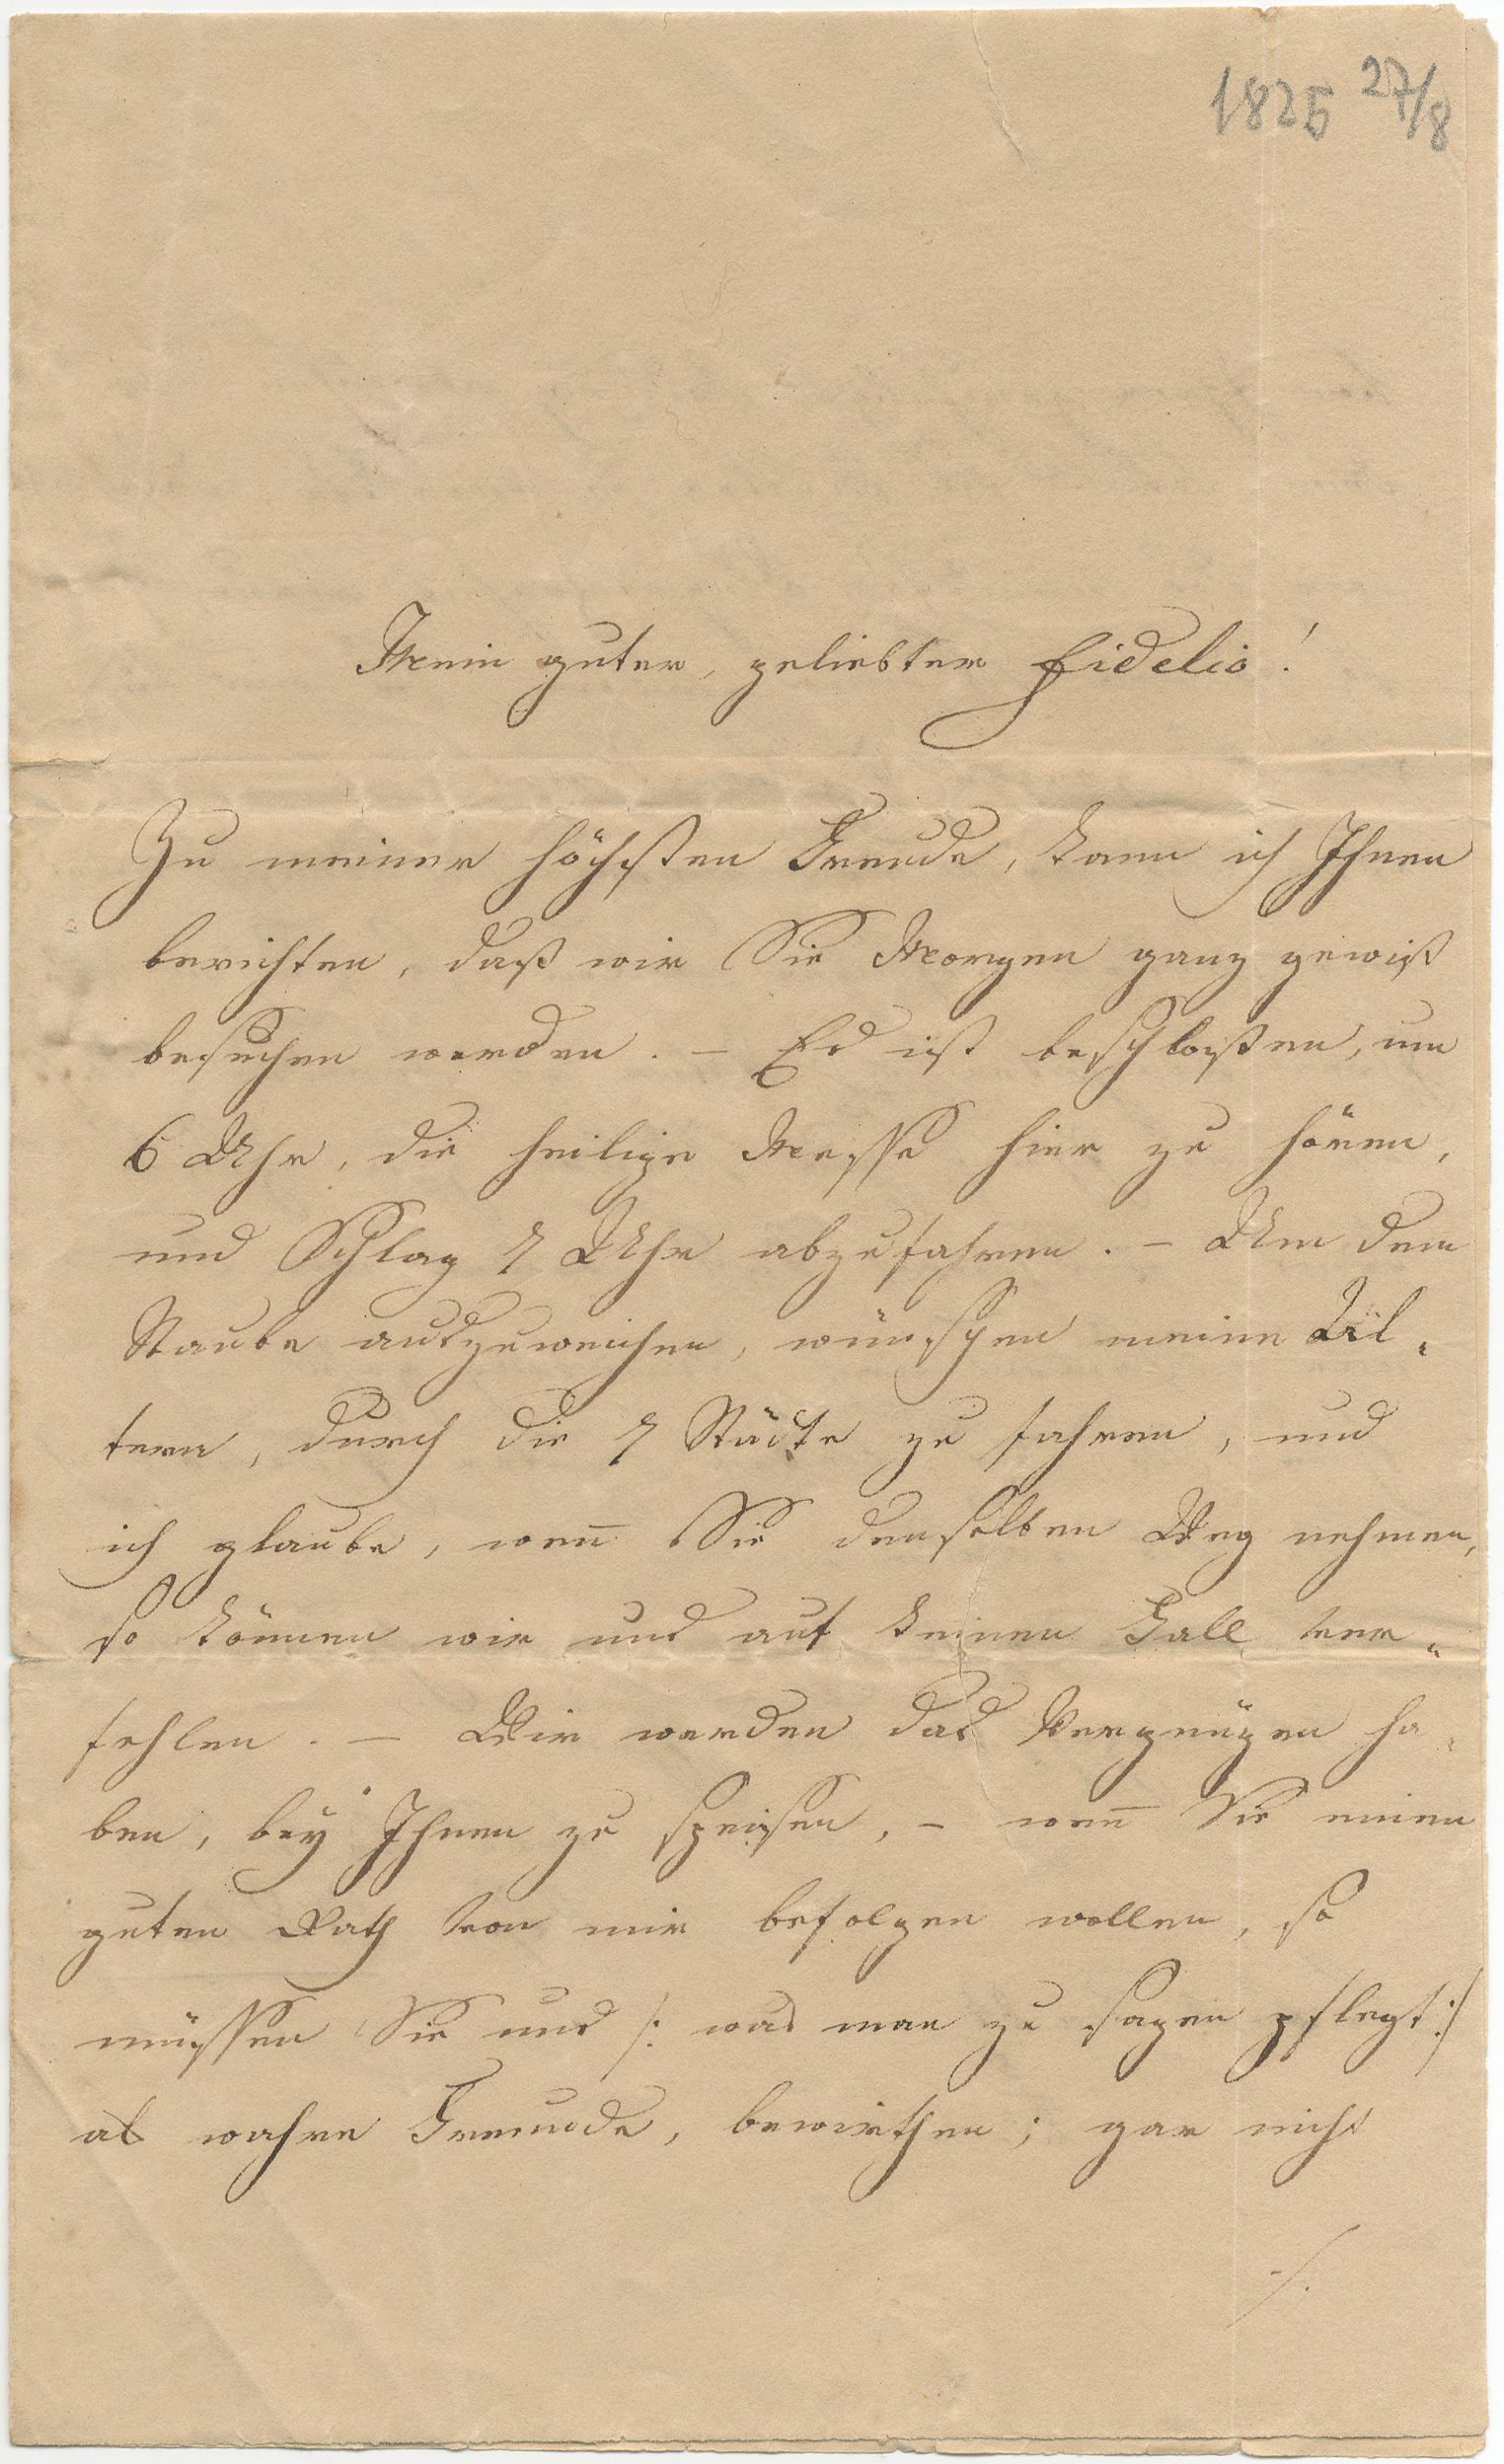 1825 27/8
Mein guter, geliebter Fidelio!
Zu meiner höchsten Freude, kann ich Ihnen
berichten, daß wir Sie Morgen ganz gewiß
besuchen werden. – Es ist beschloßen, um
6 Uhr, die heilige Messe hier zu hören,
und Schlag 7 Uhr abzufahren. – Um dem
Staube auszuweichen, wünschen meine Äl„
tern, durch die 7 Städte zu fahren, und
ich glaube, wen̅ Sie denselben Weg nehmen,
so können wir uns auf keinen Fall ver„
fehlen. – Wir werden das Vergnügen ha„
ben, bey Ihnen zu speisen, – wen̅ Sie einen
guten Rath von mir befolgen wollen, so
müssen Sie uns /: was man zu sagen pflegt :/
als wahre Freunde, bewirthen; gar nicht
-/.